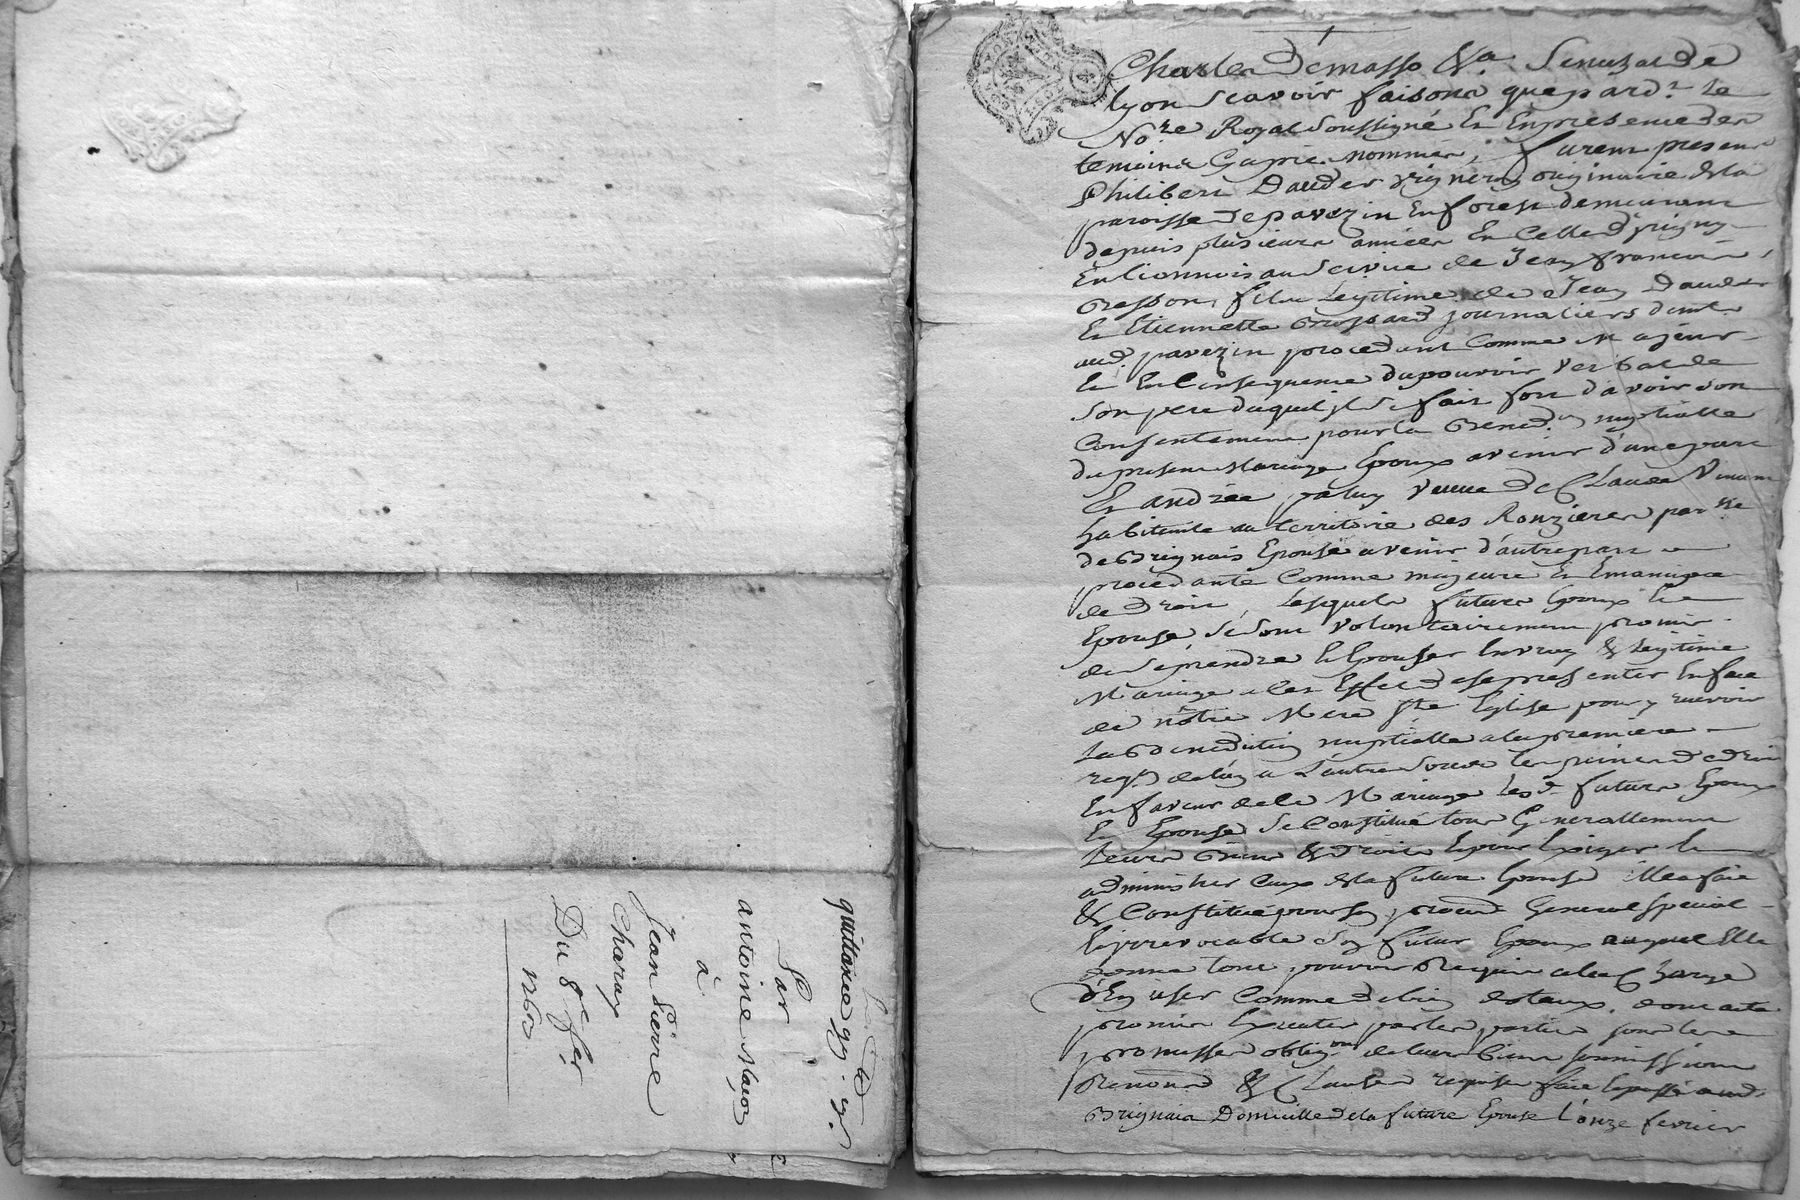 quittance
Par
antoine
à
Jean Pierre
Charay
Du 8e fer
1760
Charles Demasso &a. Senechal de
Lyon scavoir faisons que pard.t le
No.re Royal soussigné Et En presence des
temoins cy apres nommés, furent presens
Philibert Dauder vigneron originaire de la
paroisse de pavezin En forest demeurant
depuis plusieurs années En Celle d'
En lionnois au service de Jean françois
fils Legitime de Jean Dauder
Et Etiennette Brossard journaliers dud.
aud. pavezin procedant Comme Majeur
Et En Consequence du pouvoir verbal de
son pere duquel il se fait fort d'avoir son
Consentement pour la Bened.on nuptialle
du present Mariage Epoux avenir d'une part
Et andrée veuve de Claude
habitante au territoire des Ronzieres par.sse
de Brignais Epouse avenir d'autre part
procedante Comme majeure Et Emancipée
de Droit, Lesquels futurs Epoux Et
Epouse se sont volontairement promis
de se prendre Et Epouser En vray & Legitime
Mariage a ces Effet de se presenter En face
de nôtre Mere Ste Eglise pour y recevoir
la Benediction nuptialle a la premiere
req.on de l'un a L'autre sous les peines de droit
En faveur de Ce Mariage Lesd. futurs Epoux
Et Epouse se Constitué tous Generallement
Leurs Biens & droits Et pour Exiger Et
administrer Ceux de la future Epouse Elle a fait
& Constitué pour son procur General special
Et irrevocable son futur Epoux auquel Elle
donne tout pouvoir Requis a la Charge
d'En user Comme de bien dotaux. dont acte
promis Executer par les parties sous leurs
promesses oblig.on de leurs biens soumissions
Renon.on & Clauses requises fait Et passé aud.
Brignais Domicille de la future Epouse L'onze fevrier